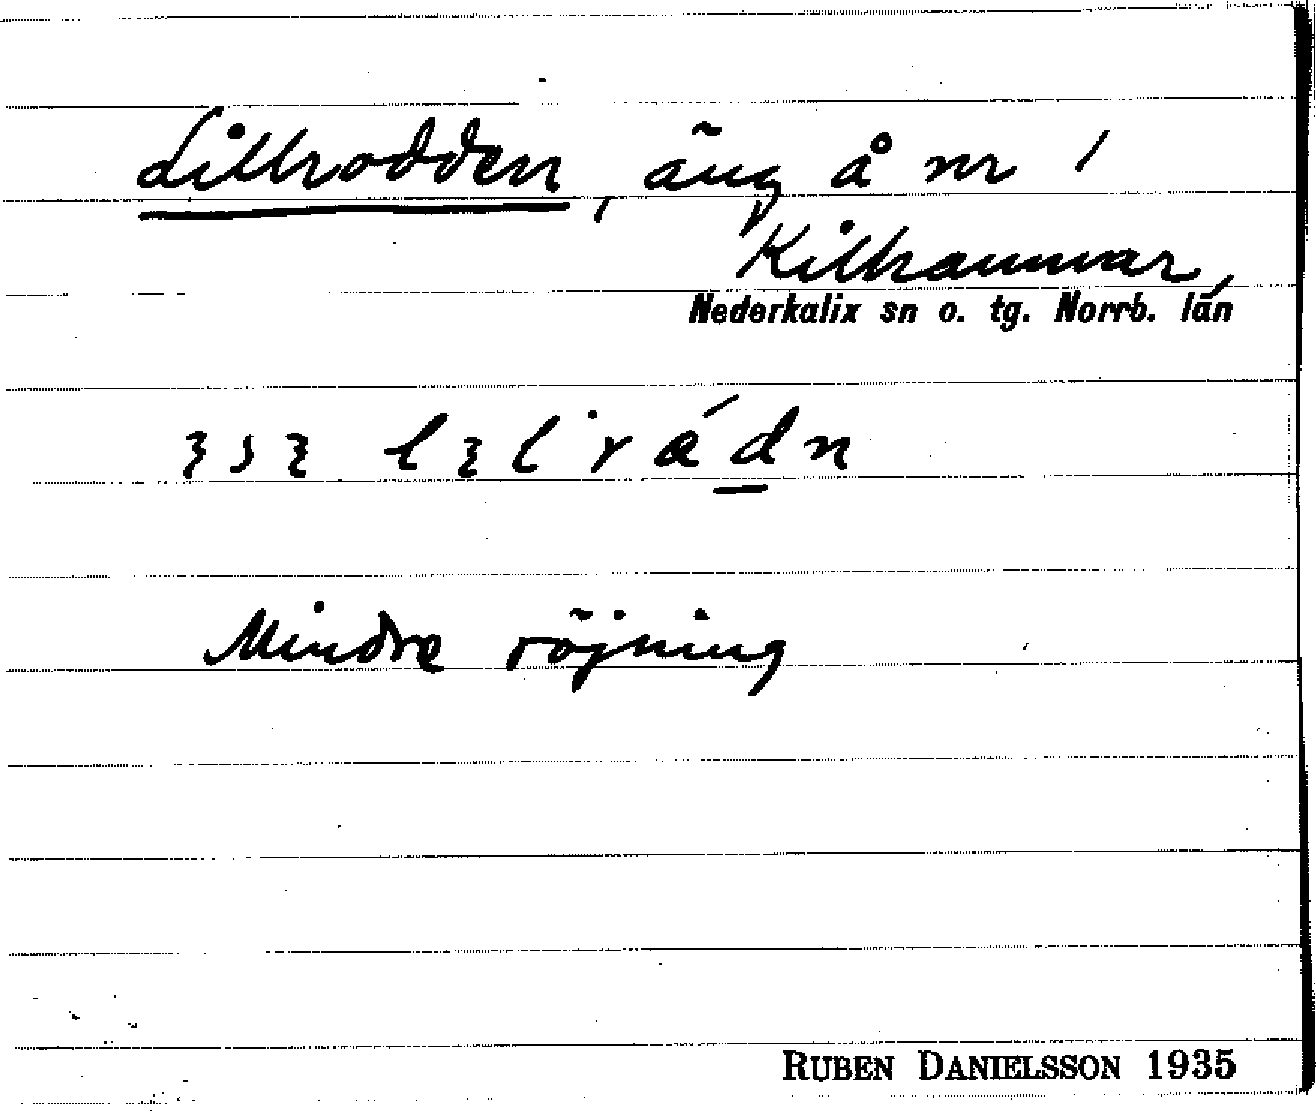 Lillrodden, äng å nr 1
Killhammar,
Nederkalix sn o. tg. Norrb. län
Mindre röjning
RUBEN DANIELSSON 1935